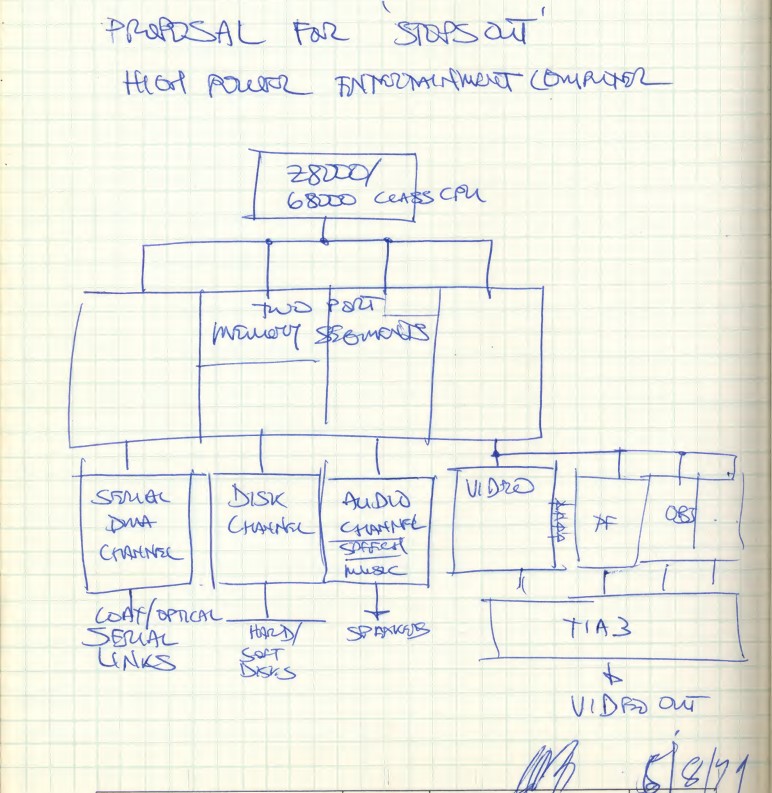 PROPOSAL FOR 'STOPS OUT'
HIGH POWER ENTERTAINMENT COMPUTER
Z8000/
68000 CLASS CPU
TWO PORT
MEMORY SEGMENTS
SERIAL
DMA
CHANNEL
DISK
CHANNEL
AUDIO
CHANNEL
SPEECH
MUSIC
VIDEO
PF
OBJ
COAX/OPTICAL
SERIAL
LINKS
HARD/
SOFT
DISKS
SPEAKERS
TIA 3
VIDEO OUT